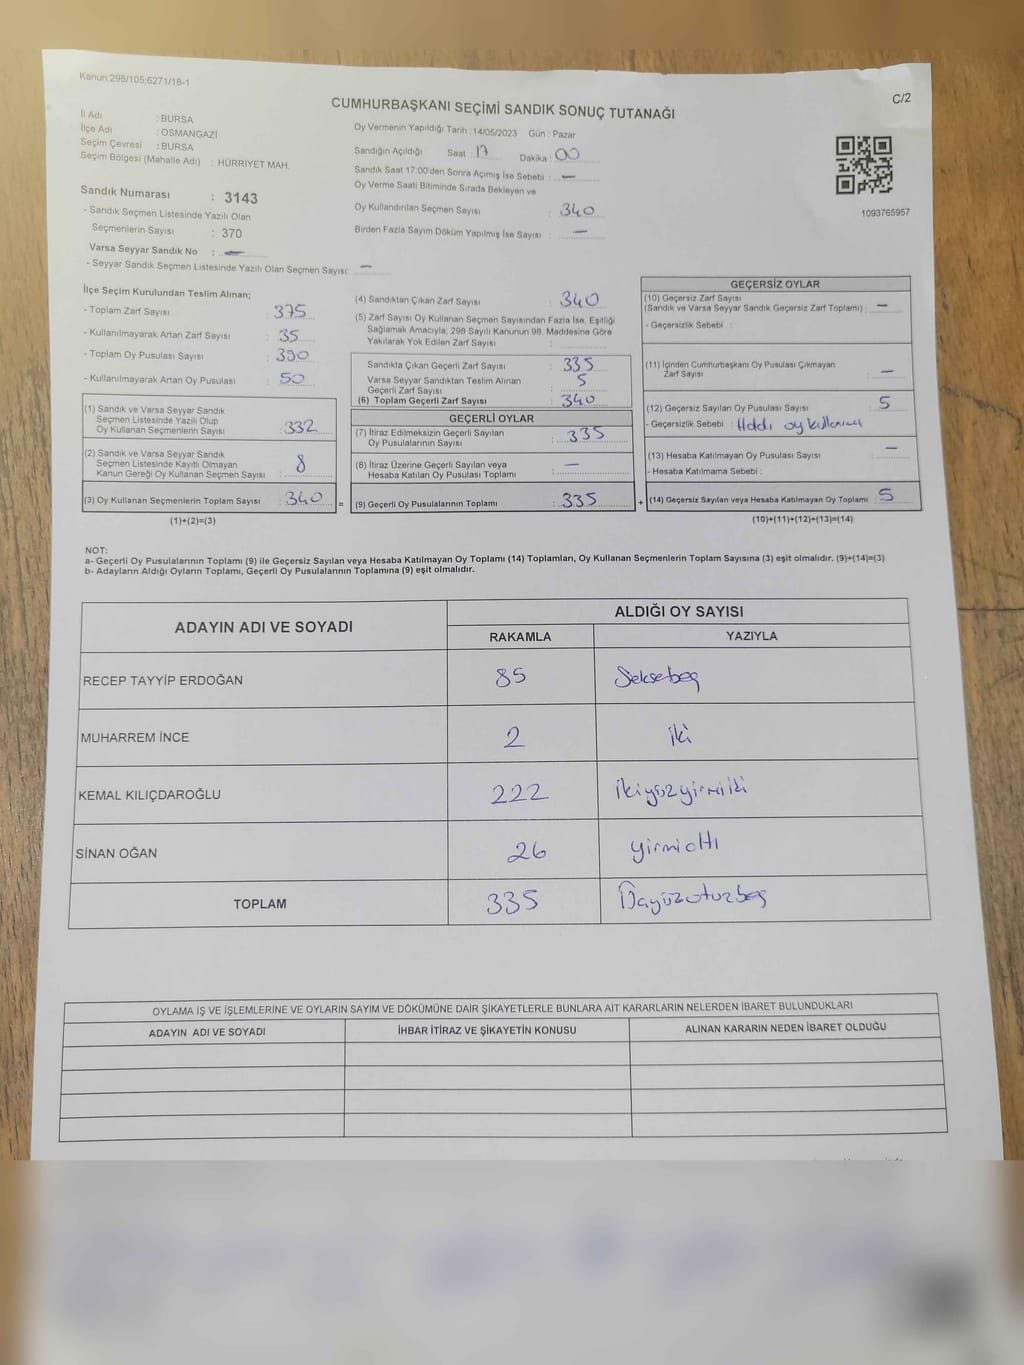 Kanun:298/105;6271/18-1
C/2
CUMHURBAŞKANI SEÇİMİ SANDIK SONUÇ TUTANAĞI
İl Adı : BURSA
İlçe Adı : OSMANGAZİ
Seçim Çevresi : BURSA
Seçim Bölgesi (Mahalle Adı) : HÜRRİYET MAH.
Sandık Numarası : 3143
- Sandık Seçmen Listesinde Yazılı Olan
Seçmenlerin Sayısı : 370
Varsa Seyyar Sandık No : —
- Seyyar Sandık Seçmen Listesinde Yazılı Olan Seçmen Sayısı: —
Oy Vermenin Yapıldığı Tarih : 14/05/2023 Gün : Pazar
Sandığın Açıldığı Saat : 17 Dakika : 00
Sandık Saat 17:00'den Sonra Açımış İse Sebebi : —
Oy Verme Saati Bitiminde Sırada Bekleyen ve
Oy Kullandırılan Seçmen Sayısı : 340
Birden Fazla Sayım Döküm Yapılmış İse Sayısı : —
1093765957
İlçe Seçim Kurulundan Teslim Alınan;
- Toplam Zarf Sayısı : 375
- Kullanılmayarak Artan Zarf Sayısı : 35
- Toplam Oy Pusulası Sayısı : 390
- Kullanılmayarak Artan Oy Pusulası : 50
(1) Sandık ve Varsa Seyyar Sandık
Seçmen Listesinde Yazılı Olup
Oy Kullanan Seçmenlerin Sayısı : 332
(2) Sandık ve Varsa Seyyar Sandık
Seçmen Listesinde Kayıtlı Olmayan
Kanun Gereği Oy Kullanan Seçmen Sayısı : 8
(3) Oy Kullanan Seçmenlerin Toplam Sayısı : 340 =
(1)+(2)=(3)
(4) Sandıktan Çıkan Zarf Sayısı : 340
(5) Zarf Sayısı Oy Kullanan Seçmen Sayısından Fazla İse, Eşitliği
Sağlamak Amacıyla, 298 Sayılı Kanunun 98. Maddesine Göre
Yakılarak Yok Edilen Zarf Sayısı :
Sandıkta Çıkan Geçerli Zarf Sayısı : 335
Varsa Seyyar Sandıktan Teslim Alınan
Geçerli Zarf Sayısı : 5
(6) Toplam Geçerli Zarf Sayısı : 340
GEÇERLİ OYLAR
(7) İtiraz Edilmeksizin Geçerli Sayılan
Oy Pusulalarının Sayısı : 335
(8) İtiraz Üzerine Geçerli Sayılan veya
Hesaba Katılan Oy Pusulası Toplamı : —
(9) Geçerli Oy Pusulalarının Toplamı : 335 +
GEÇERSİZ OYLAR
(10) Geçersiz Zarf Sayısı
(Sandık ve Varsa Seyyar Sandık Geçersiz Zarf Toplamı) : —
- Geçersizlik Sebebi :
(11) İçinden Cumhurbaşkanı Oy Pusulası Çıkmayan
Zarf Sayısı : —
(12) Geçersiz Sayılan Oy Pusulası Sayısı : 5
- Geçersizlik Sebebi : oy kullanımı
(13) Hesaba Katılmayan Oy Pusulası Sayısı : —
- Hesaba Katılmama Sebebi :
(14) Geçersiz Sayılan veya Hesaba Katılmayan Oy Toplamı : 5
(10)+(11)+(12)+(13)=(14)
NOT:
a- Geçerli Oy Pusulalarının Toplamı (9) ile Geçersiz Sayılan veya Hesaba Katılmayan Oy Toplamı (14) Toplamları, Oy Kullanan Seçmenlerin Toplam Sayısına (3) eşit olmalıdır. (9)+(14)=(3)
b- Adayların Aldığı Oyların Toplamı, Geçerli Oy Pusulalarının Toplamına (9) eşit olmalıdır.
ADAYIN ADI VE SOYADI ALDIĞI OY SAYISI
RAKAMLA YAZIYLA
RECEP TAYYİP ERDOĞAN 85 Seksebeş
MUHARREM İNCE 2 iki
KEMAL KILIÇDAROĞLU 222 ikiyüzyirmiiki
SİNAN OĞAN 26 yirmialtı
TOPLAM 335 Üçyüzotuzbeş
OYLAMA İŞ VE İŞLEMLERİNE VE OYLARIN SAYIM VE DÖKÜMÜNE DAİR ŞİKAYETLERLE BUNLARA AİT KARARLARIN NELERDEN İBARET BULUNDUKLARI
ADAYIN ADI VE SOYADI İHBAR İTİRAZ VE ŞİKAYETİN KONUSU ALINAN KARARIN NEDEN İBARET OLDUĞU